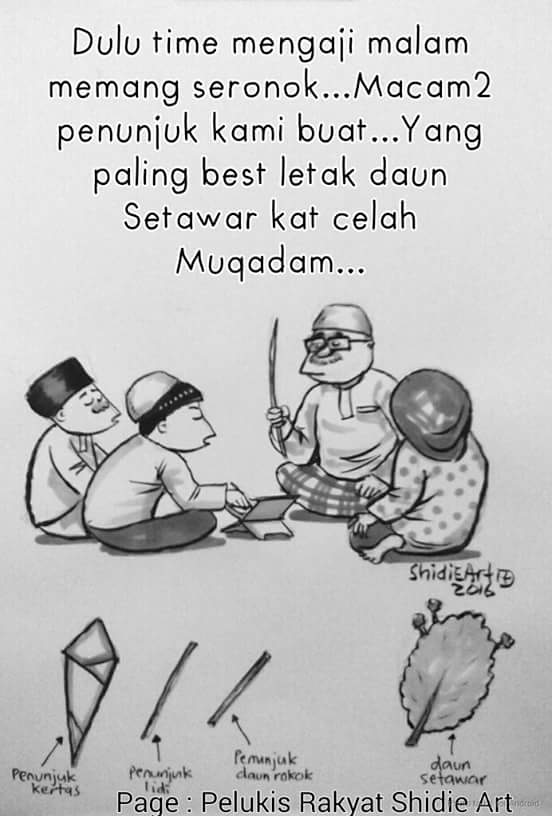 Dulu time mengaji malam
memang seronok...Macam2
penunjuk kami buat...Yang
paling best letak daun
Setawar kat celah
Muqadam...
ShidiEArt
2016
Penunjuk
kertas
Penunjuk
lidi
Penunjuk
daun rokok
daun
setawar
Page : Pelukis Rakyat Shidie Art